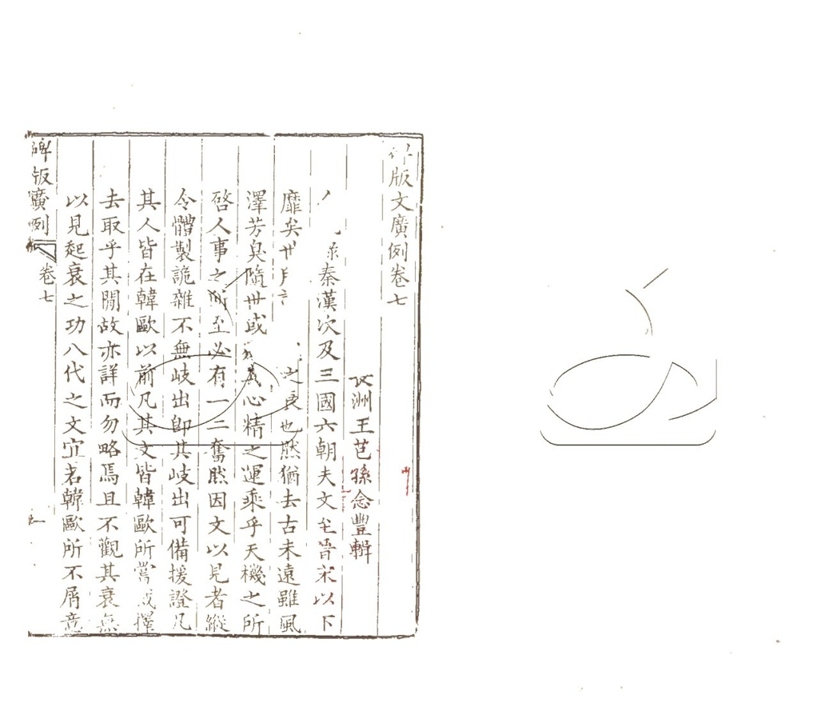 版文廣例卷七
長洲王芑孫念豐輯
秦漢次及三國六朝夫文至晉宋以下
靡矣世之衰也然猶去古未遠雖風
澤芳臭隨世或義心精之運乘乎天機之所
啓人事之所至必有一二奮然因文以見者縱
令體製詭雜不無岐出卽其岐出可備援證凡
其人皆在韓歐以前凡其文皆韓歐所嘗或擇
去取乎其閒故亦詳而勿略焉且不觀其衰無
以見起衰之功八代之文宜若韓歐所不屑意
碑版廣例
卷七